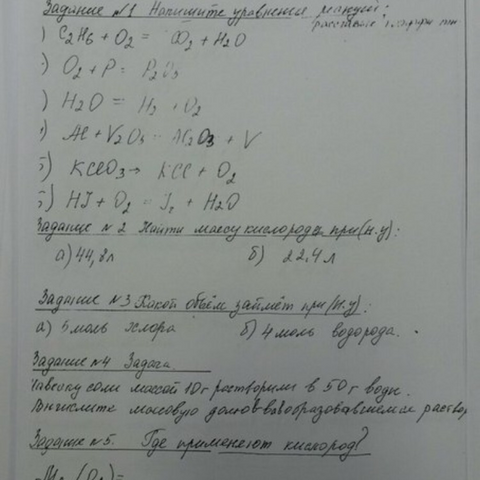 Задание №1 Напишите уравнения реакций:
C2H6 + O2 = CO2 + H2O
O2 + P = P2O5
H2O = H2 + O2
Al + V2O5 = Al2O3 + V
KClO3 → KCl + O2
HJ + O2 = J2 + H2O
Задание №2 Найти массу кислорода при (н.у):
а) 44,8л б) 22,4л
Задание №3 Какой объём займёт при (н.у):
а) 5 моль хлора б) 4 моль водорода.
Задание №4 Задача.
Навеску соли массой 10г растворили в 50г воды.
Вычислите массовую долю в-ва в образовавшемся раствор
Задание №5. Где применяют кислород?
Mr (O2) =